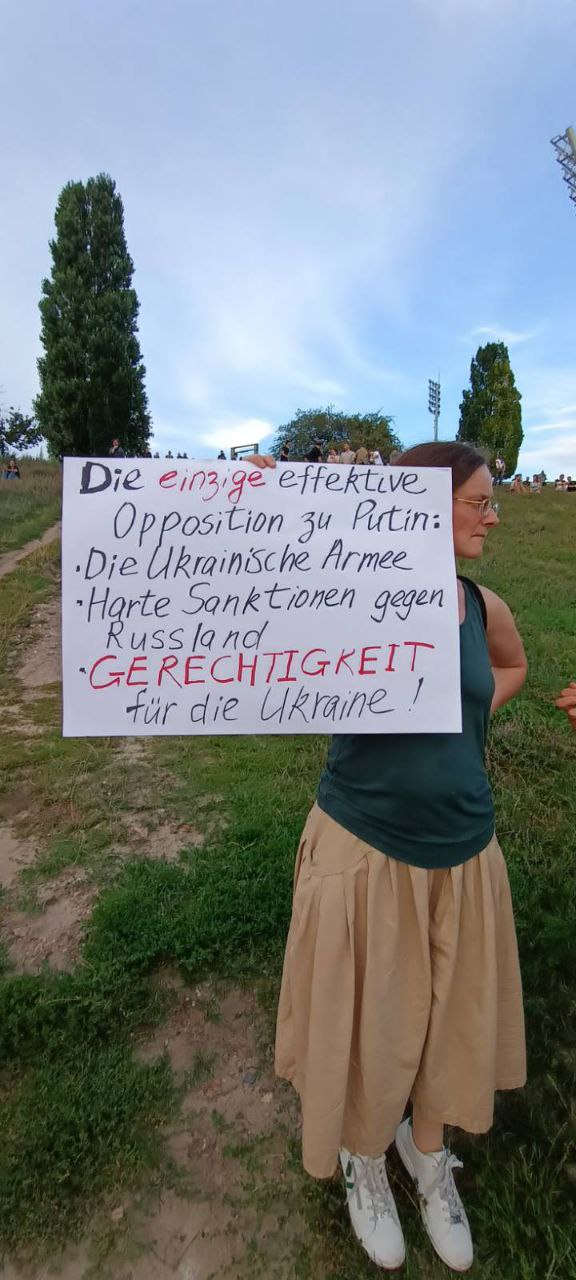 Die einzige effektive
Opposition zu Putin:
·Die Ukrainische Armee
·Harte Sanktionen gegen
Russland
·GERECHTIGKEIT
für die Ukraine!